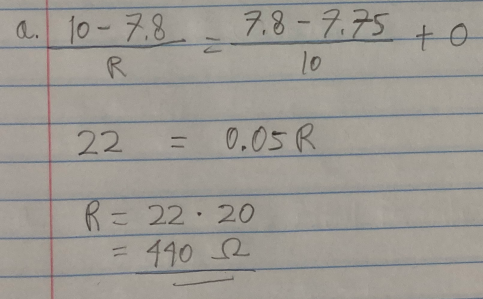 a. (10 - 7.8)/R = (7.8 - 7.75)/10 + 0
22 = 0.05R
R = 22 · 20
= 440 Ω